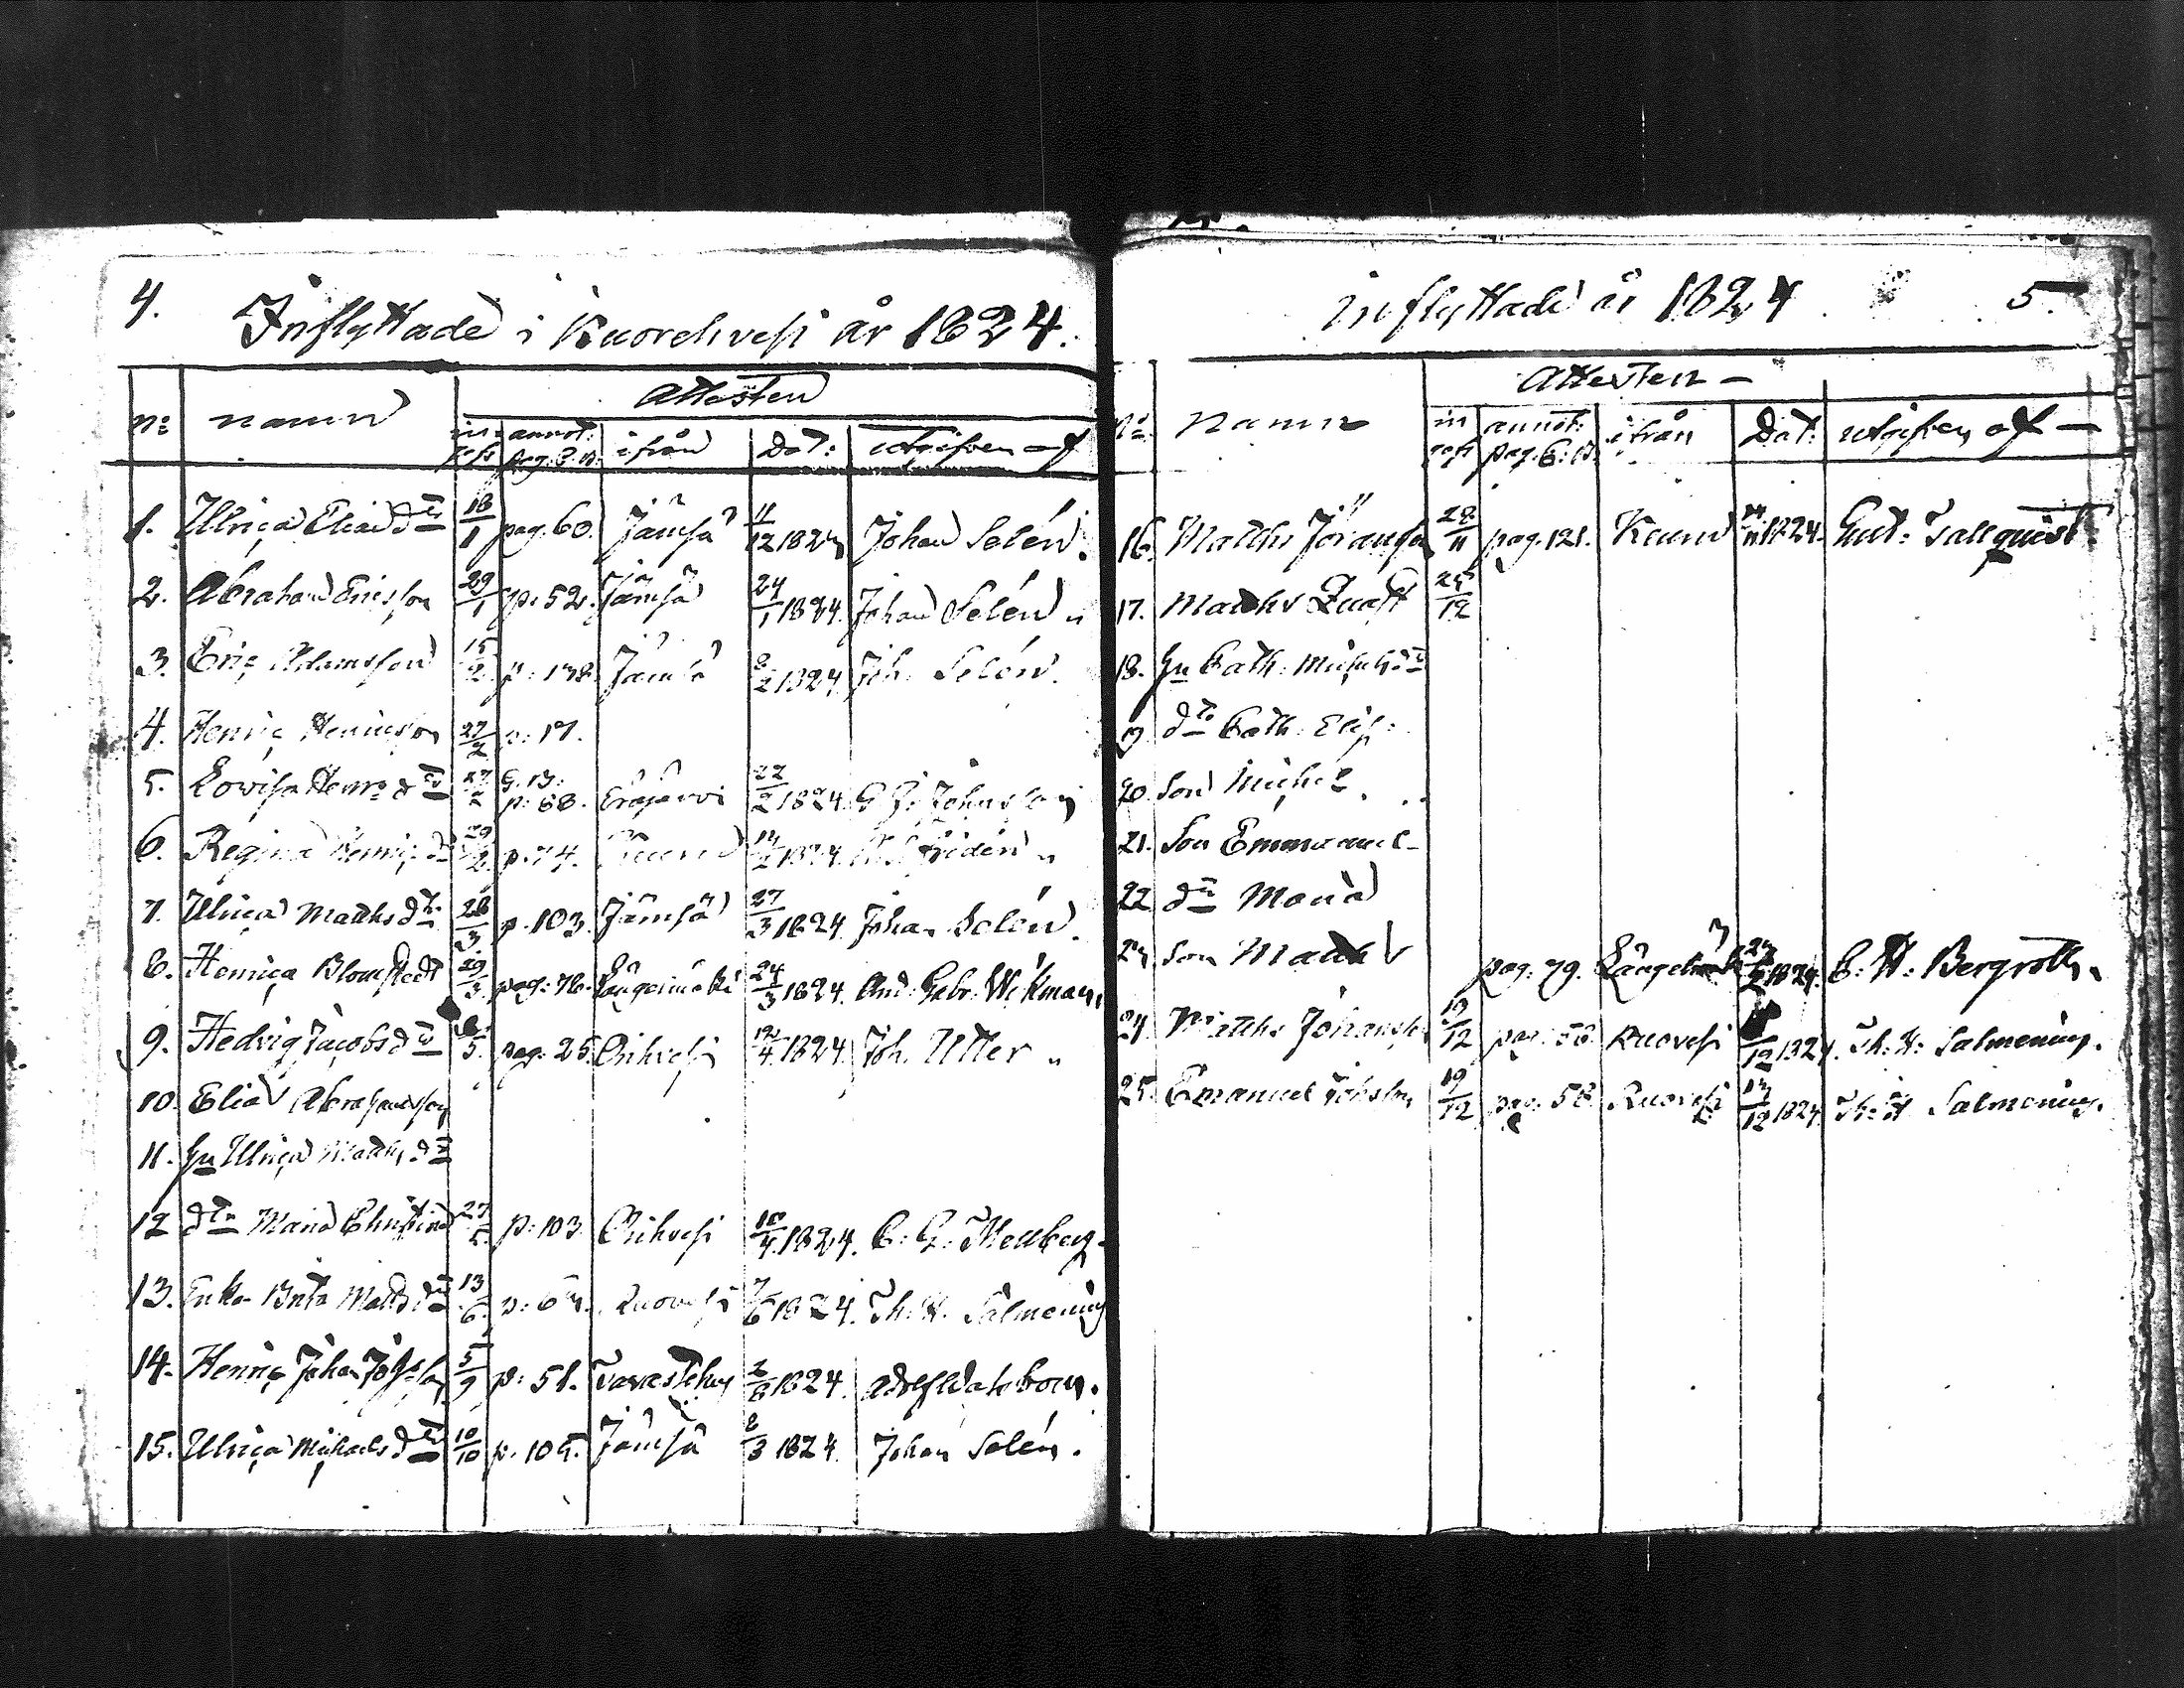 4.
Inflyttade i Kuorehvesi år 1824.
Attesten
No namn ingifv annot: pag. C.B. ifrån Dat: utgifven af
1. Ulrica Eliæ dtr 18/1 pag. 60. Jämsä 11/12 1823 Johan Selén.
2. Abraham Ericsson 29/1 p. 52. Jämsä 24/1 1824. Johan Selén
3. Eric Adamsson 15/2 p. 138 Jämsä 8/2 1824. Joh. Selén.
4. Henric Henricson 27/2 p. 17.
5. Lovisa Henr: dtr 27/2 C.B: p: 68. Eräjärvi 22/2 1824. G Johnsson
6. Regina Henric dr 29/2 p. 74. 1824. Fridén
7. Ulrica Matths dtr 28/3 p. 103. Jämsä 27/3 1824. Johan Selén.
8. Henrica Blomstedt 29/3 pag: 76. Längelmäki 24/3 1824. And: Gabr: Wikman.
9. Hedvig Jacobs dtr /5. pag: 25. Orihvesi /4 1824. Joh. Utter
10. Elias Abrahamsson
11. Hu Ulrica Matths dr
12 dtr Maria Christina 27/5 p: 103. Orihvesi 18/4 1824. C: G: Mellberg.
13. Enka Brita Matts dtr 13/6. p: 63. Ruovesi 7/6 1824. Th. H. Salmening
14. Henric Johan Johsson 5/9 p: 51. Tavastehus 2/8 1824. Adolf Dahlbom.
15. Ulrica Michaels dtr 10/10 p. 105. Jämsä 8/3 1824. Johan Selén.
inflyttade år 1824. 5.
Attesten
No Namn in gifv annot: pag. C: B. ifrån Dat: utgifven af
16. Matths Jöransson 28/11 pag. 121. /11 1824. Gust: Tallquist.
17. Matths Quast 25/12
18. Hu Cath: Michels dr
19 dtr Cath: Elis:
20. Son Michel
21. Son Emmanuel
22 dtr Maria
23 Son Matths pag. 79. Längelmäki 1824. C: H: Bergroth.
24. Matths Johansson 19/12 pag. 58 Ruovesi /12 1824. Th: H: Salmening.
25. Emanuel Johsson 19/12 pag. 58 Ruovesi 13/12 1824. Th: H Salmening.